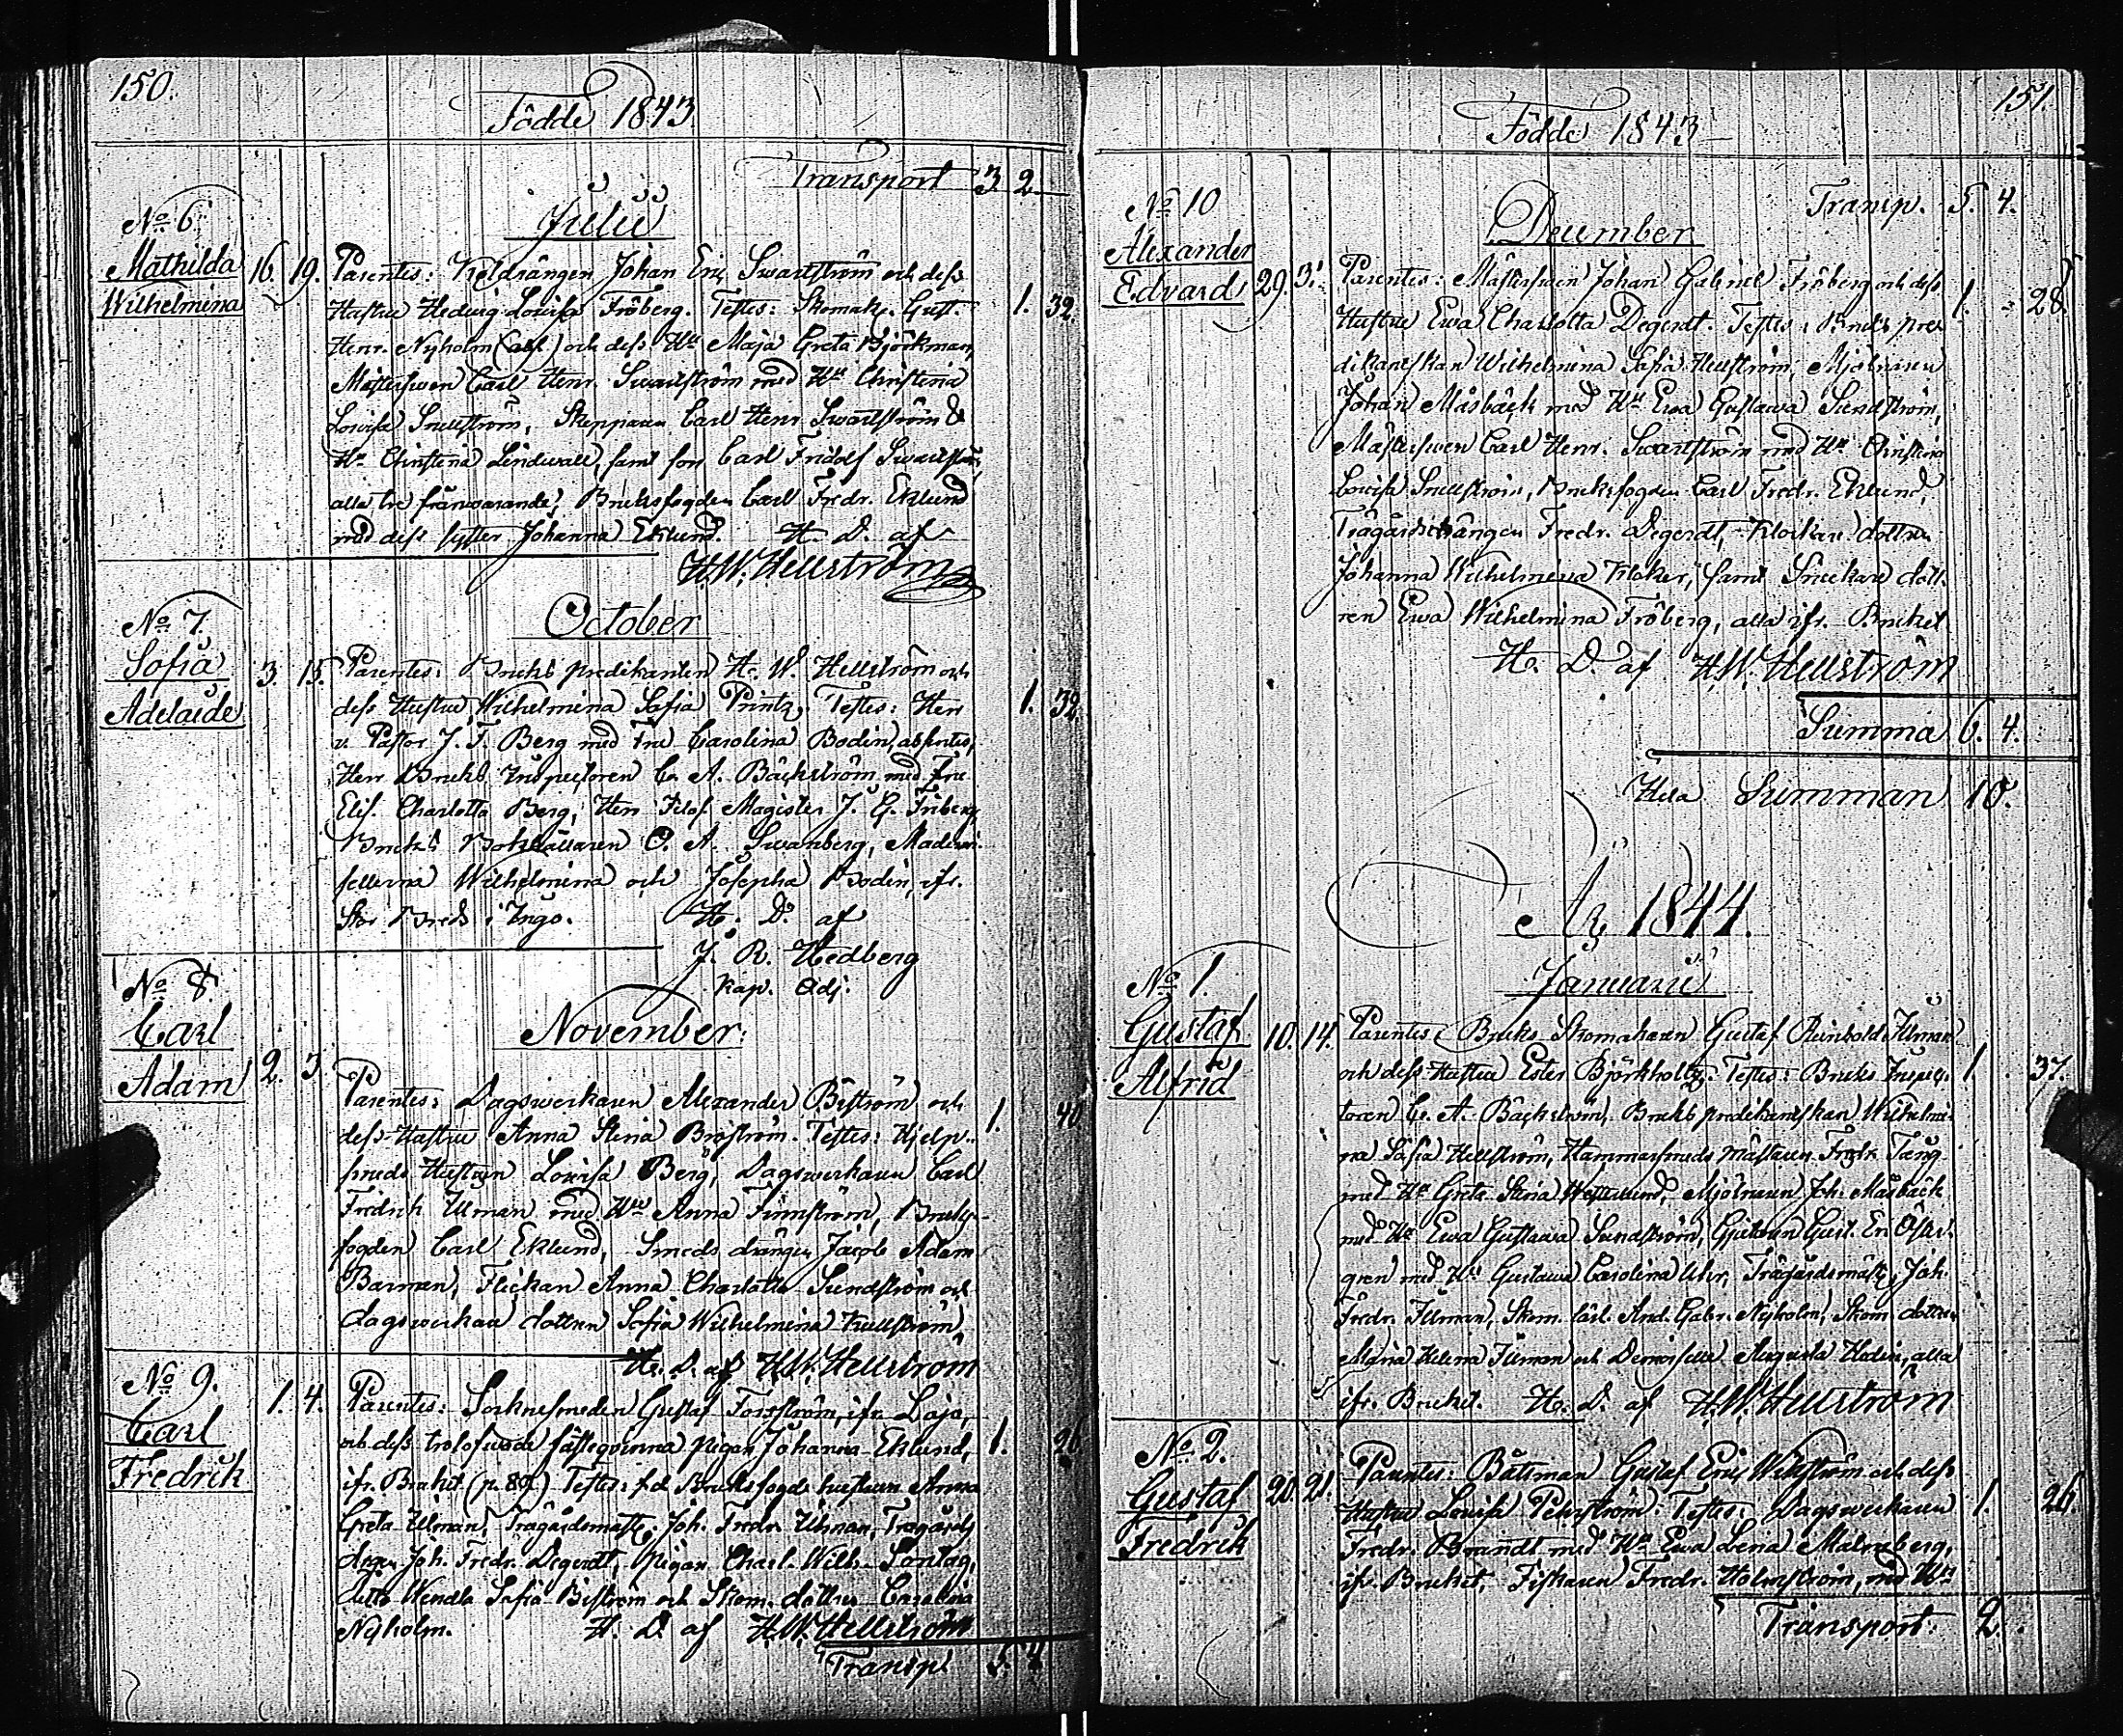 150.
Födde 1843
Transport 3 2.
Julii
No 6.
Mathilda 16. 19.
Wilhelmina
Parentes: Johan Eric Swartström och dess
Hustru Hedvig Lovisa Fröberg. Testes: Skomak. Gust. 1. 32.
Henr. Nyholm och dess Hu Maja Greta Björkman,
Mästersven Carl Henr. Swartström med Hu Christina
Lovisa Snellström, Skepparen Carl Henr. Swartström &
Hu Christina Lindwall, samt son Carl Fridolf Swartström,
alla tre frånvarande, Bruksfogden Carl Fredr. Eklund
med dess syster Johanna Eklund. H. D. af
H.W. Hellström
October
No 7.
Sofia 3. 15.
Adelaide
Parentes: Bruks predikanten H. W. Hellström och
dess Hustru Wilhelmina Sofia Printz. Testes: Herr 1. 32.
v. Pastor J. T. Berg med Fru Carolina Bodin, absentes,
Herr Bruks Inspectoren C. A. Bäckström med Fru
Elis. Charlotta Berg, Herr Filos. Magister J. E. Friberg,
Bruks Bokhållaren O. A. Swanberg, Mademoi-
sellerna Wilhelmina och Josepha Bodin, ifr.
Stor Breds i Ingo. H. D. af
J. R. Hedberg
Kap. Adj.
November.
No 8.
Carl
Adam 2. 3
Parentes: Dagswerkaren Alexander Biström och
dess Hustru Anna Stina Broström. Testes: Hjelp- 1. 40
smeds Hustrun Lovisa Berg, Dagswerkaren Carl
Fredrik Ulman med Hu Anna Finnström, Bruks-
fogden Carl Eklund, Smeds drängen Jacob Adam
Barman, Flickan Anna Charlotta Sundström och
dagswerkare dottren Sofia Wilhelmina
H. D. af H.W. Hellström
No 9. 1. 4.
Carl
Fredrik
Parentes: Socknesmeden Gustaf Forsström, ifr. Lojo,
och dess trolofwade fästeqvinna pigan Johanna Eklund, 1. 26
ifr. Bruket (p. 89.) Testes: f.d. Bruksfogds hustrun Anna
Greta Ulman, Trägårdsmäst. Joh. Fredr. Ulman, Trägårds
drgen Joh. Fredr. Degerdt, Pigan Charl. Wilh. Sontag,
ditto Wendla Sofia Biström och Skom. dottren Carolina
Nyholm. H. D. af H.W. Hellström
Transp. 5. 4.
151.
Födde 1843
Transp. 5. 4.
December
No 10
Alexander
Edvard 29. 31.
Parentes: Mästersven Johan Gabriel Fröberg och dess
Hustru Ewa Charlotta Degerdt. Testes: Bruks pre- 1. 28.
dikanskan Wilhelmina Sofia Hellström, Mjölnaren
Johan Måsbäck med Hu Ewa Gustawa Sundström,
Mästersven Carl Henr. Swartström med Hu Christina
Lovisa Snellström, Bruksfogden Carl Fredr. Eklund,
Trägårdsdrängen Fredr. Degerdt, Klockare dottren
Johanna Wilhelmina Kloker, samt Snickare dott-
ren Ewa Wilhelmina Fröberg, alla ifr. Bruket
H. D. af H.W. Hellström
Summa 6. 4.
Hela Summan 10.
År 1844.
Januarii
No 1.
Gustaf 10. 14.
Alfrid
Parentes: Bruks Skomakaren Gustaf Reinhold Ilman
och dess Hustru Ester Björkholtz. Testes: Bruks Inspec- 1 37.
toren C. A. Bäckström, Bruks predikanskan Wilhelmi-
na Sofia Hellström, Hammarsmeds mästaren Fredr. Tæng
med Hu Greta Stina Westerlund, Mjölnaren Joh. Måsbäck
med Hu Ewa Gustawa Sundström, Gjutaren Gust. Er. Öster-
gren med Hu Gustawa Carolina Uhr, Trägårdsmäst. Joh.
Fredr. Ilman, Skom. lärl. And. Gabr. Nyholm, Skom. dottren
Maria Helena Ilman och Demoiselle Augusta Hedin, alla
ifr. Bruket. H. D. af H.W. Hellström
No 2.
Gustaf 20. 21.
Fredrik
Parentes: Båtsman Gustaf Eric Wikström och dess
Hustru Lovisa Pehrström. Testes: Dagswerkaren 1. 26.
Fredr. Brandt med Hu Ewa Lena Malmberg,
ifr. Bruket, Fiskaren Fredr. Holmström, med Hu
Transport. 2.